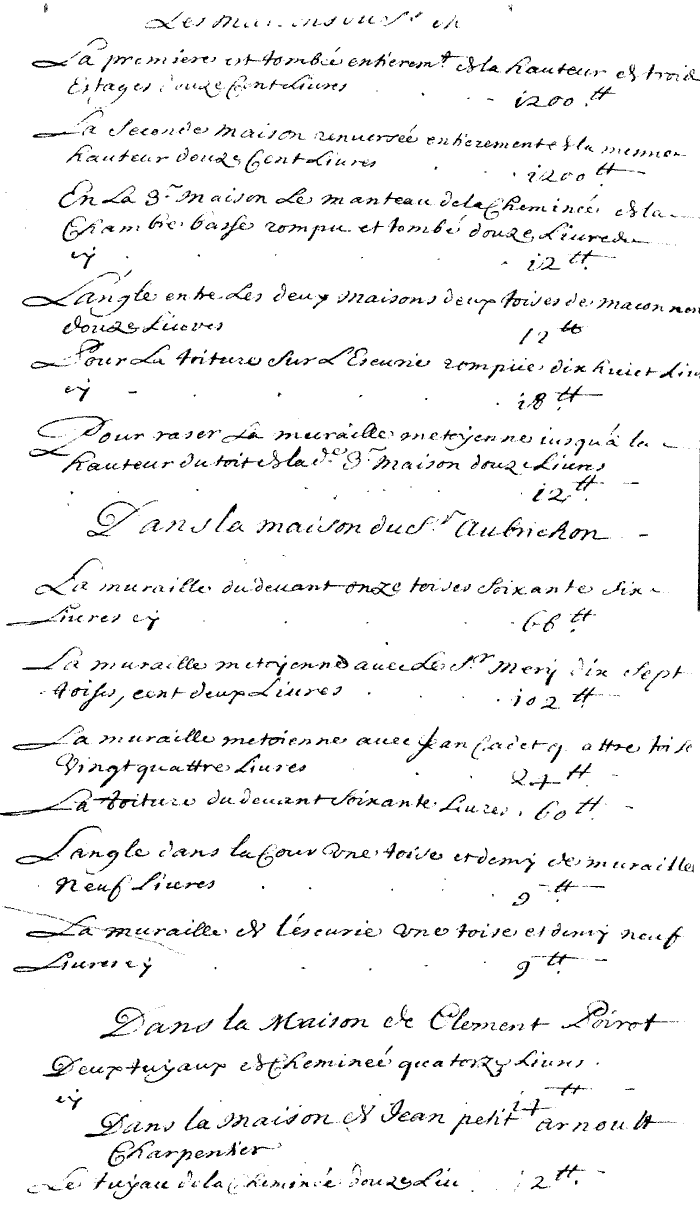 Les
La premiere est tombée entierem.t de la hauteur de trois
Estages douze Cent Livres
1200 tt.
La Seconde maison renversée entierement de la mesme
hauteur douze Cent Livres
1200 tt
En La 3.e Maison Le manteau dela Cheminée de la
Chambre basse rompu et tombé douze Livres
cy 12 tt.
L'angle entre Les deux maisons deux toises de maconne
douze Livres 12 tt
Pour La toiture Sur L'Escurie rompüe dix huict Liv
cy 18 tt.
Pour raser La muraille metoyenne iusqu'a la
hauteur du toit de la d.e 3.e maison douze Livres
12 tt.
Dans la maison du S.r Aubrichon
La muraille du devant onze toises Soixante Six
Livres cy 66 tt.
La muraille metoyenne avec Le S.r Mery dix sept
toises, cent deux Livres 102 tt.
La muraille metoienne avec Jean Cadet q attre toise
Vingt quattre Livres 24 tt.
La toiture du devant Soixante Livres. 60 tt.
L'angle dans la Cour une toise et demy de muraille
Neuf Livres 9 tt.
La muraille de l'escurie une toise et demy neuf
Livres cy 9 tt.
Dans la Maison de Clement Poirot
Deux tuyaux de Cheminée quatorze Livres
cy 14 tt
Dans la maison de Jean petit arnoult
Charpentier
Le tuyau de la Cheminée douze Liv 12 tt.